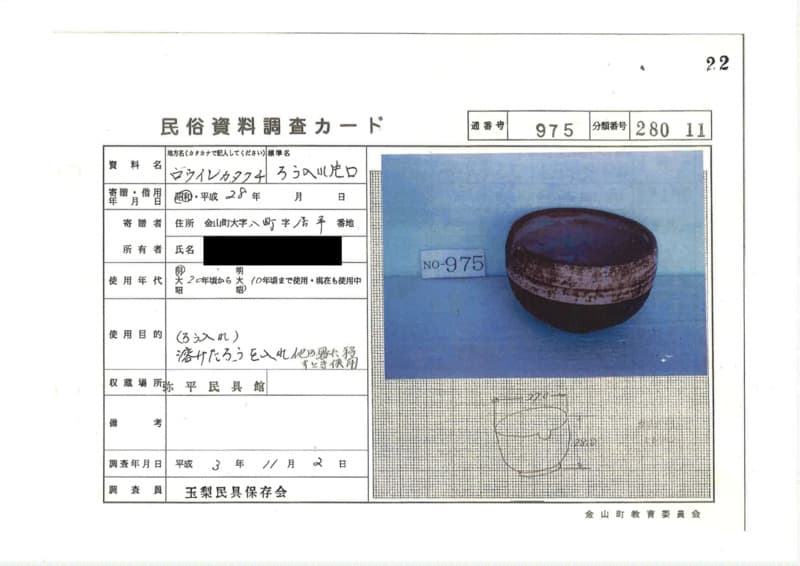 22
民俗資料調査カード
通番号 975 分類番号 280 11
資料名 地方名(カタカナで記入してください) 標準名
ロウイレカタクチ ろう入れ片口
寄贈・借用年月日 昭和・平成 28年 月 日
寄贈者 住所 金山町大字八町字居平 番地
所有者 氏名
使用年代 明大昭 20年頃から 明大昭 10年頃まで使用・現在も使用中
使用目的 (ろう入れ)
溶けたろうを入れ他の器に移すとき使用
収蔵場所 弥平民具館
備考
調査年月日 平成 3年 11月 2日
調査員 玉梨民具保存会
NO-975
28.0
金山町教育委員会